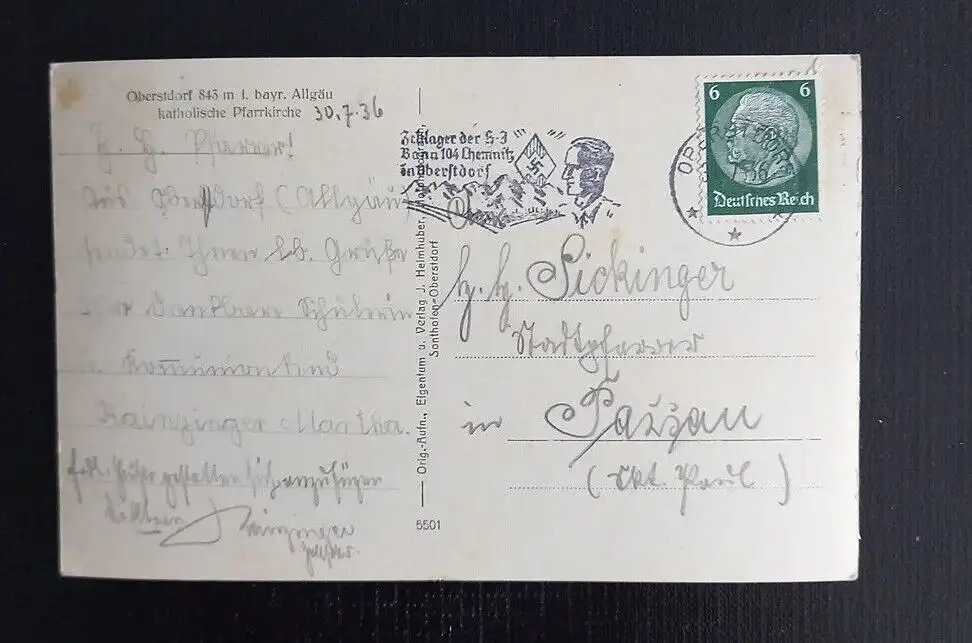 Oberstdorf 843 m i. bayr. Allgäu
katholische Pfarrkirche 30.7.36
H. H. Pfarrer!
Aus Oberstdorf (Allgäu)
sendet Ihnen lb. Grüße
Ihre dankbare Schülerin
u. Kommunionkind
Martha.
gestatten sich anzufügen
Orig.-Aufn., Eigentum u. Verlag J. Heimhuber,
Sonthofen-Oberstdorf
5501
Zeltlager der H-J
Bann 104 Chemnitz
in Oberstdorf
6 6
Deutsches Reich
H. H. Sickinger
Stadtpfarrer
in Passau
(Skt. Paul)